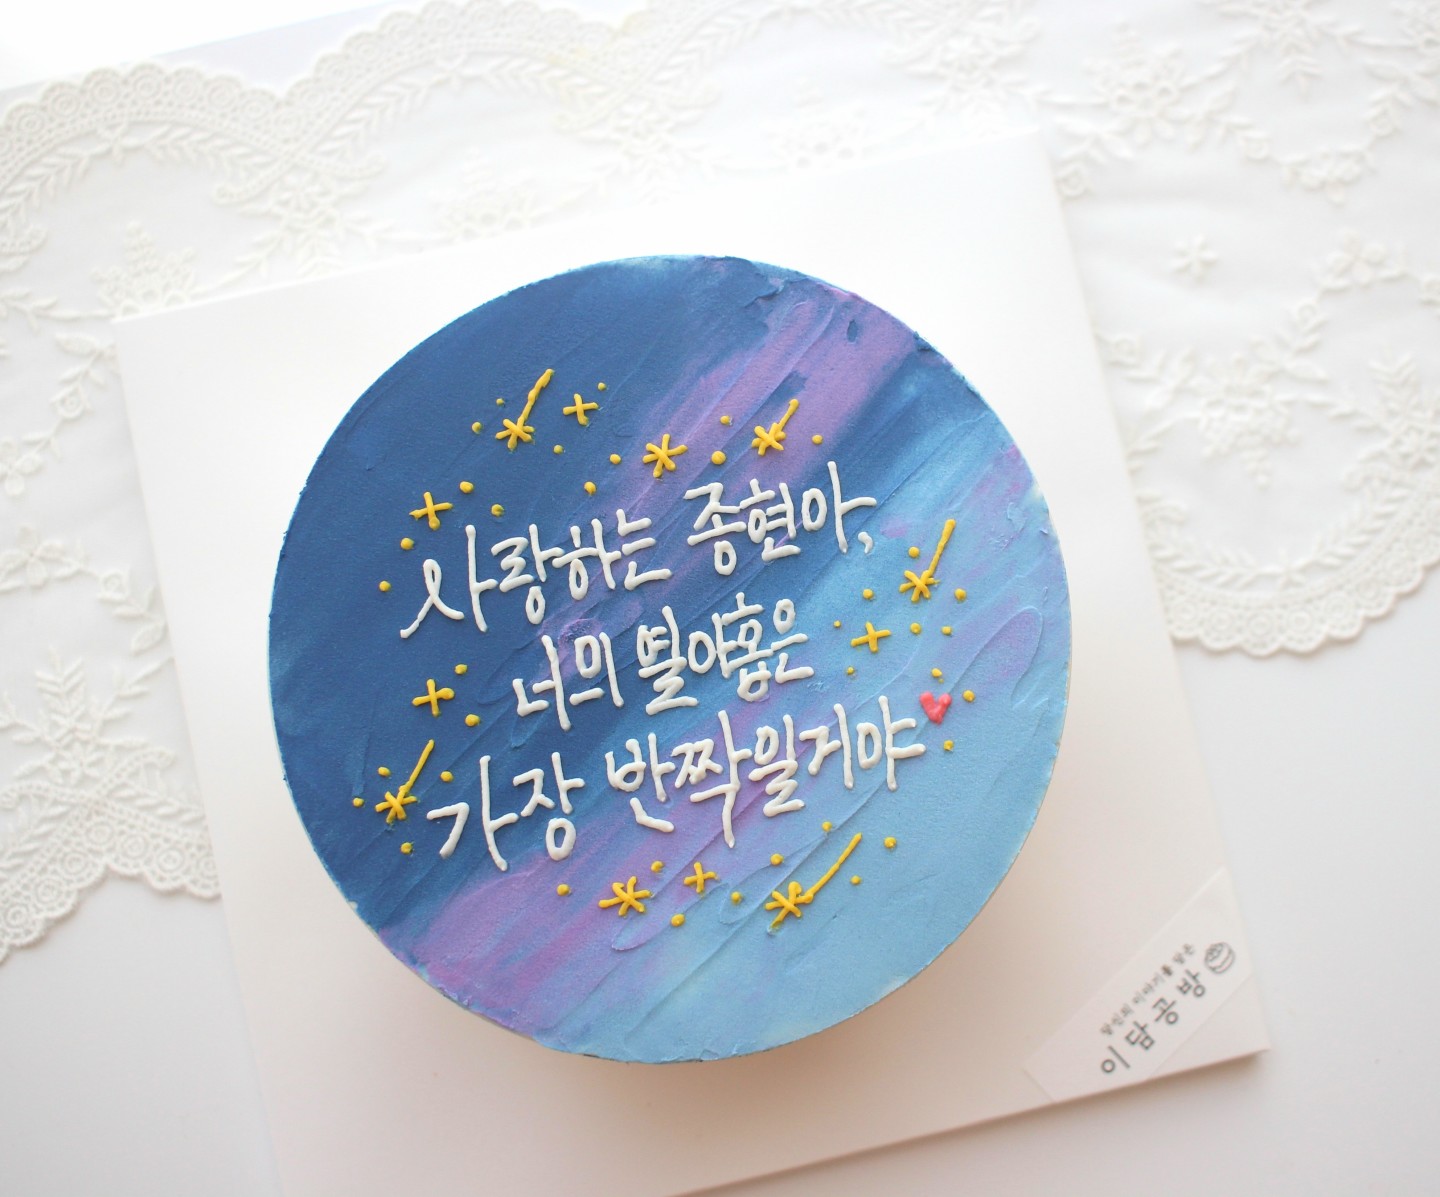 사랑하는 종현아,
너의 열아홉은
가장 반짝일거야
당신의 이야기를 담은
이담공방